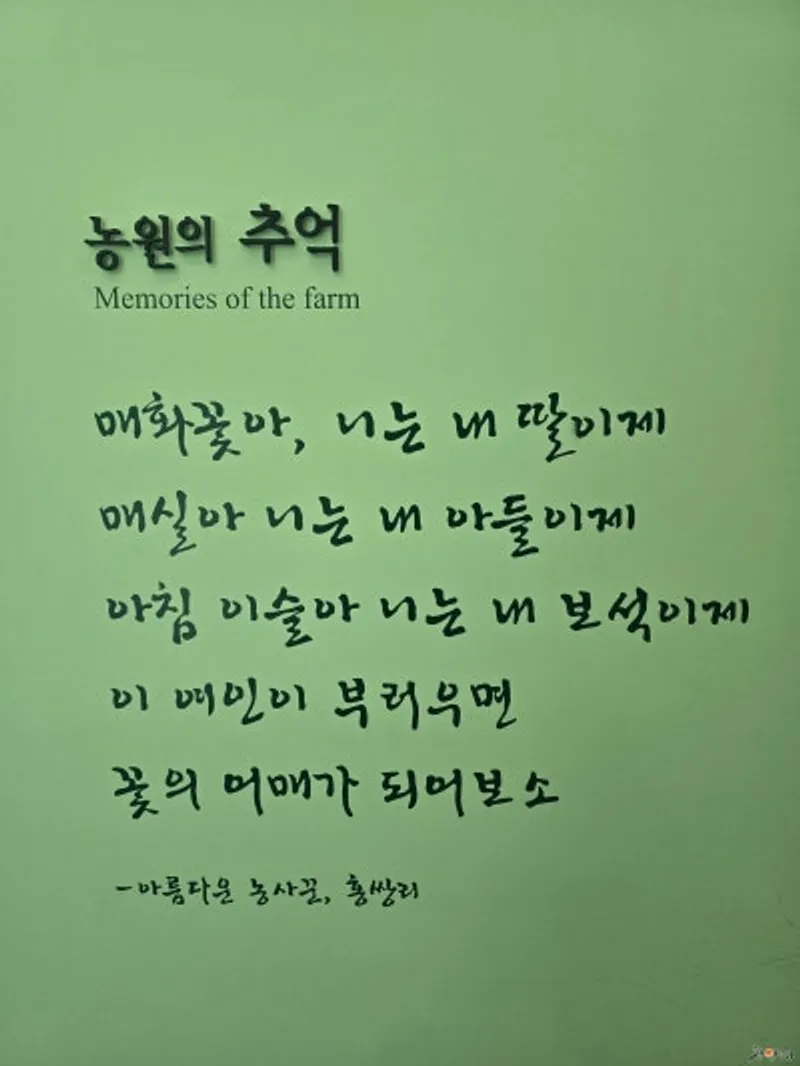 농원의 추억
Memories of the farm
매화꽃아, 니는 내 딸이제
매실아 니는 내 아들이제
아침 이슬아 니는 내 보석이제
이 여인이 부러우면
꽃의 어매가 되어보소
-아름다운 농사꾼, 홍쌍리